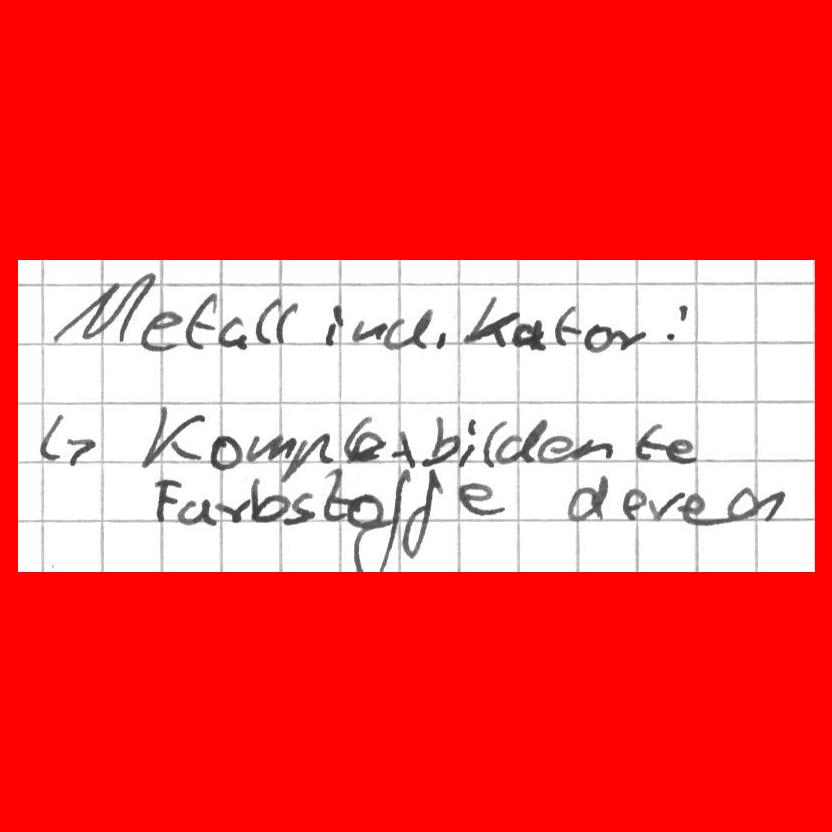 Metallindikator:
↳ Komplexbildente
Farbstoffe deren